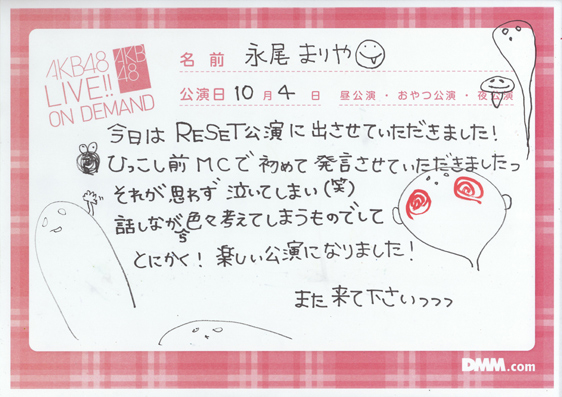 AKB48
LIVE!!
ON DEMAND
AKB
48
名前 永尾まりや
公演日 10月4日 昼公演・おやつ公演・夜公演
今日はRESET公演に出させていただきました!
ひっこし前MCで初めて発言させていただきましたっ
それが思わず泣いてしまい(笑)
話しながら色々考えてしまうものでして
とにかく!楽しい公演になりました!
また来て下さいっっっ
DMM.com